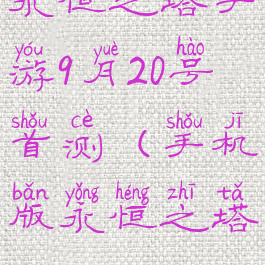 永恒之塔手
yóu yuè hào
游9月20号
shǒu cè shǒu jī
首测（手机
bǎn yǒng héng zhī tǎ
版永恒之塔